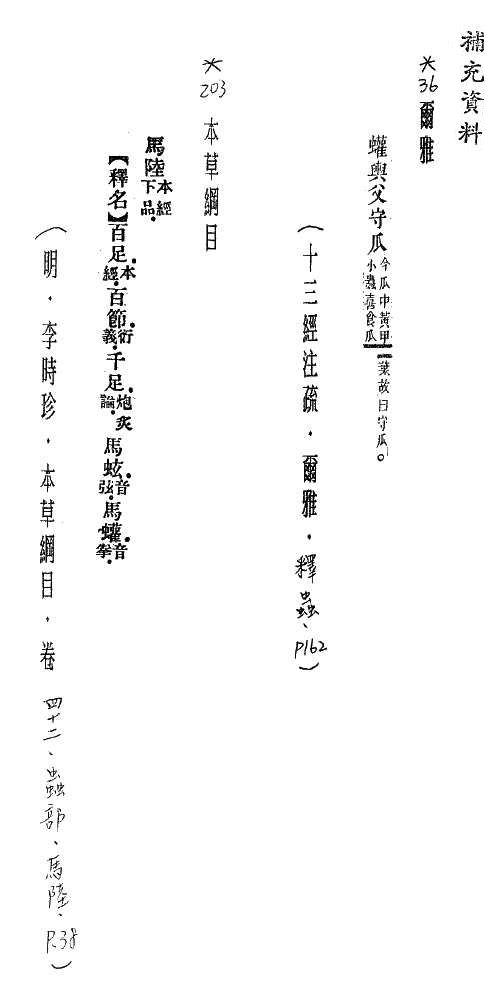 補充資料
*36 爾雅
蠸輿父守瓜 今瓜中黃甲小蟲喜食瓜葉故曰守瓜。
(十三經注疏・爾雅・釋蟲、P162)
*203 本草綱目
馬陸 本經下品。
【釋名】百足 本經 百節 衍義 千足 炮炙論 馬蚿 音弦 馬蠸 音拳
(明・李時珍・本草綱目・卷四十二、蟲部、馬陸、P.38)